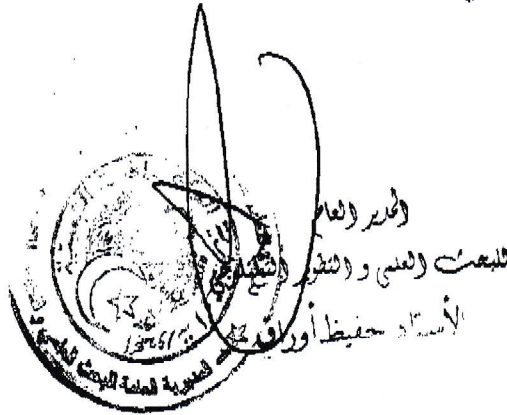 المدير العام
للبحث العلمي و التطوير التكنولوجي
الأستاذ حفيظ أوراق
المديرية العامة للبحث العلمي